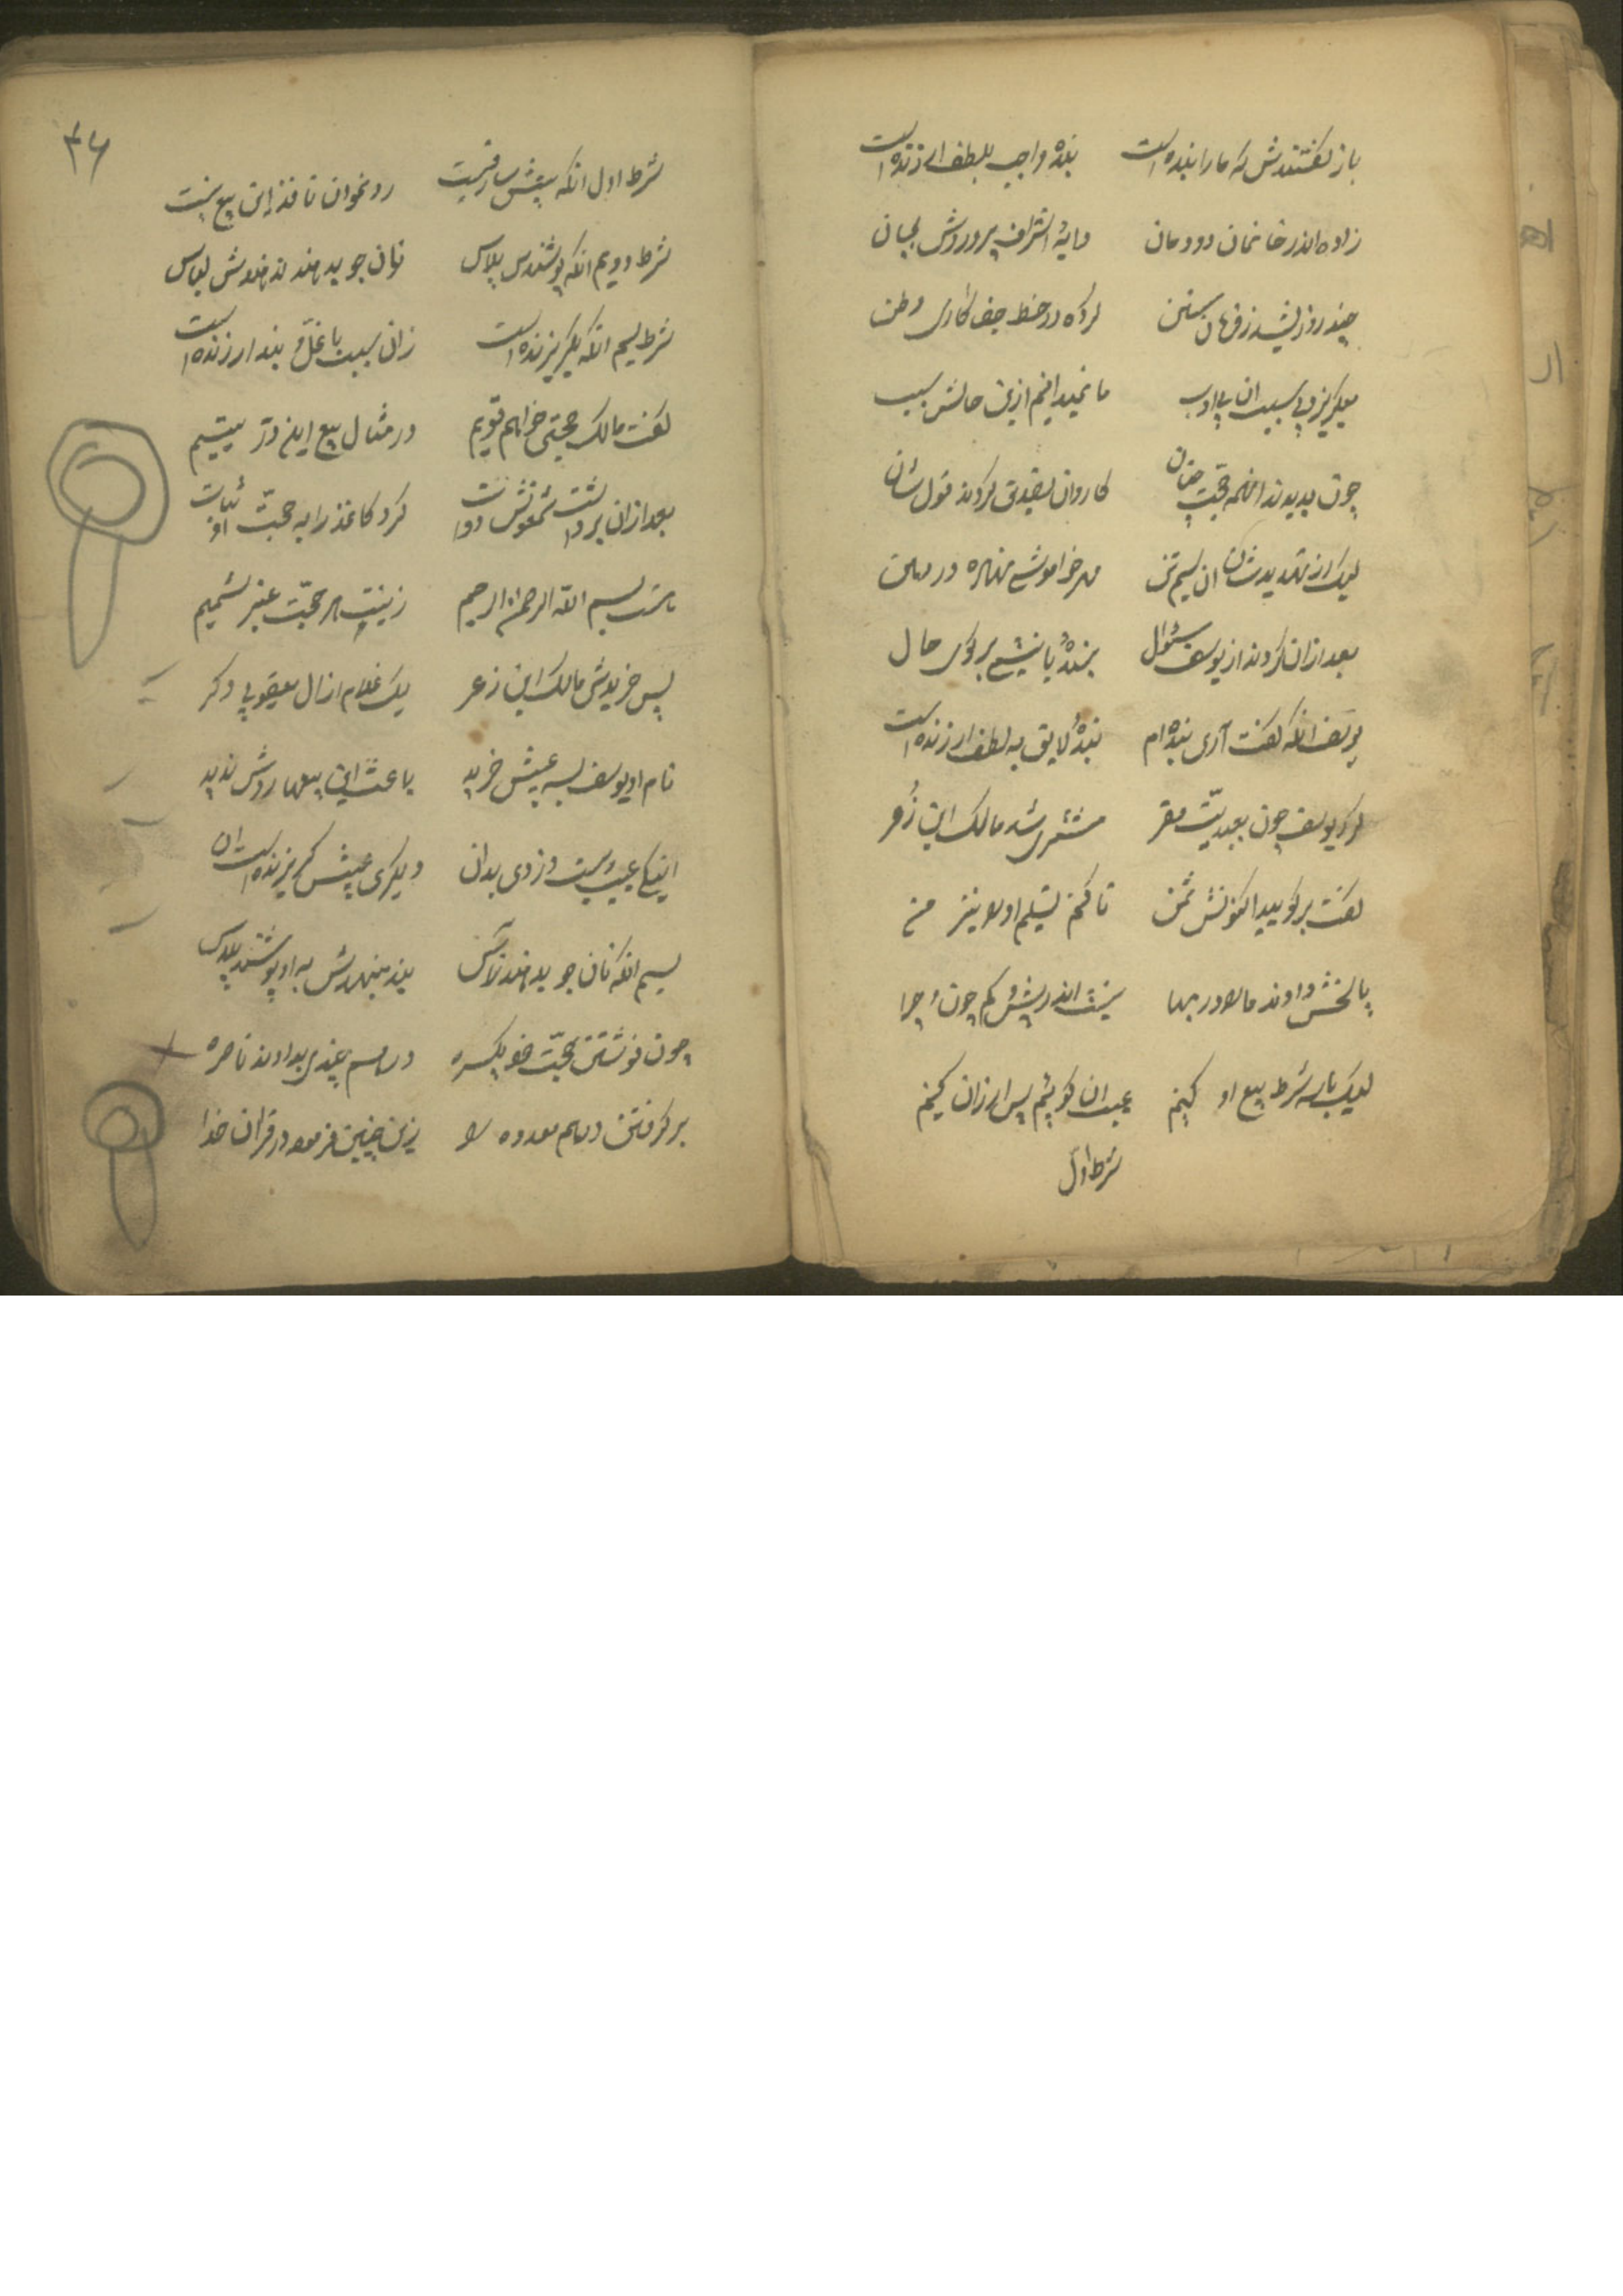 باز گفتندش که ما را بنده است بنده واجب بلطف ارزنده است
زاده اندر خانمان دودمان دایهٔ اشراف پروردش بجان
چند روز کرده در خط جفاکاری وطن
میگریزد بی سبب ان بی ادب ما نمیدانیم ازین حالش سبب
چون بدیدند انهمه حجت چنان کاروان تصدیق کردند قول شان
لیک از تهدید شان ان سیم تن مهر خاموشی نهاده در دهن
بعد ازان کردند از یوسف سئوال بندهٔ یا نیستی برگوی حال
یوسف انگه گفت آری بنده ام بندهٔ لایق به لطف ارزنده است
کرد یوسف چون بعبدیت مقر مشتری شد مالک ابن زعر
گفت برگویید اکنونش ثمن تا کنم تسلیم او را نیز من
پاسخش دادند ما را در بها نیست اندر بیش و کم چون و چرا
لیک با سه شرط بیع او کنیم عیب ان گوییم پس ارزان کنیم
شرط اول
۳۶
شرط اول انکه عیبش سارقیست رو نخوان نافذ این بیع نیست
شرط دویم انکه پوشندش پلاس نان جو بدهند ندهندش لباس
شرط سیم انکه بگریزنده است زان سبب با غل و بند ارزنده است
گفت مالک حجتی خواهم قویم در مثال بیع این در یتیم
بعد ازان برداشت شمعونش دوات کرد کاغذ را به حجت او ثبات
بسم الله الرحمن الرحیم زینت هر حجت عنبر شمیم
پس خریدش مالک ابن زعر یک غلام از ال یعقوبی دگر
نام او یوسف بسه عیبش خرید باعث این بیعها ردش ندید
اینکه عیب اوست دزدی بدان دیگری عیبش گریزنده است ان
سیم انکه نان جو بدهند ناس بند بنهندش به او پوشند پلاس
چون نوشتن حجت خود یکسره دراهم چندی بدادند ناصره
برگرفتن دراهم معدوده را زین چنین فرمود در قران خدا